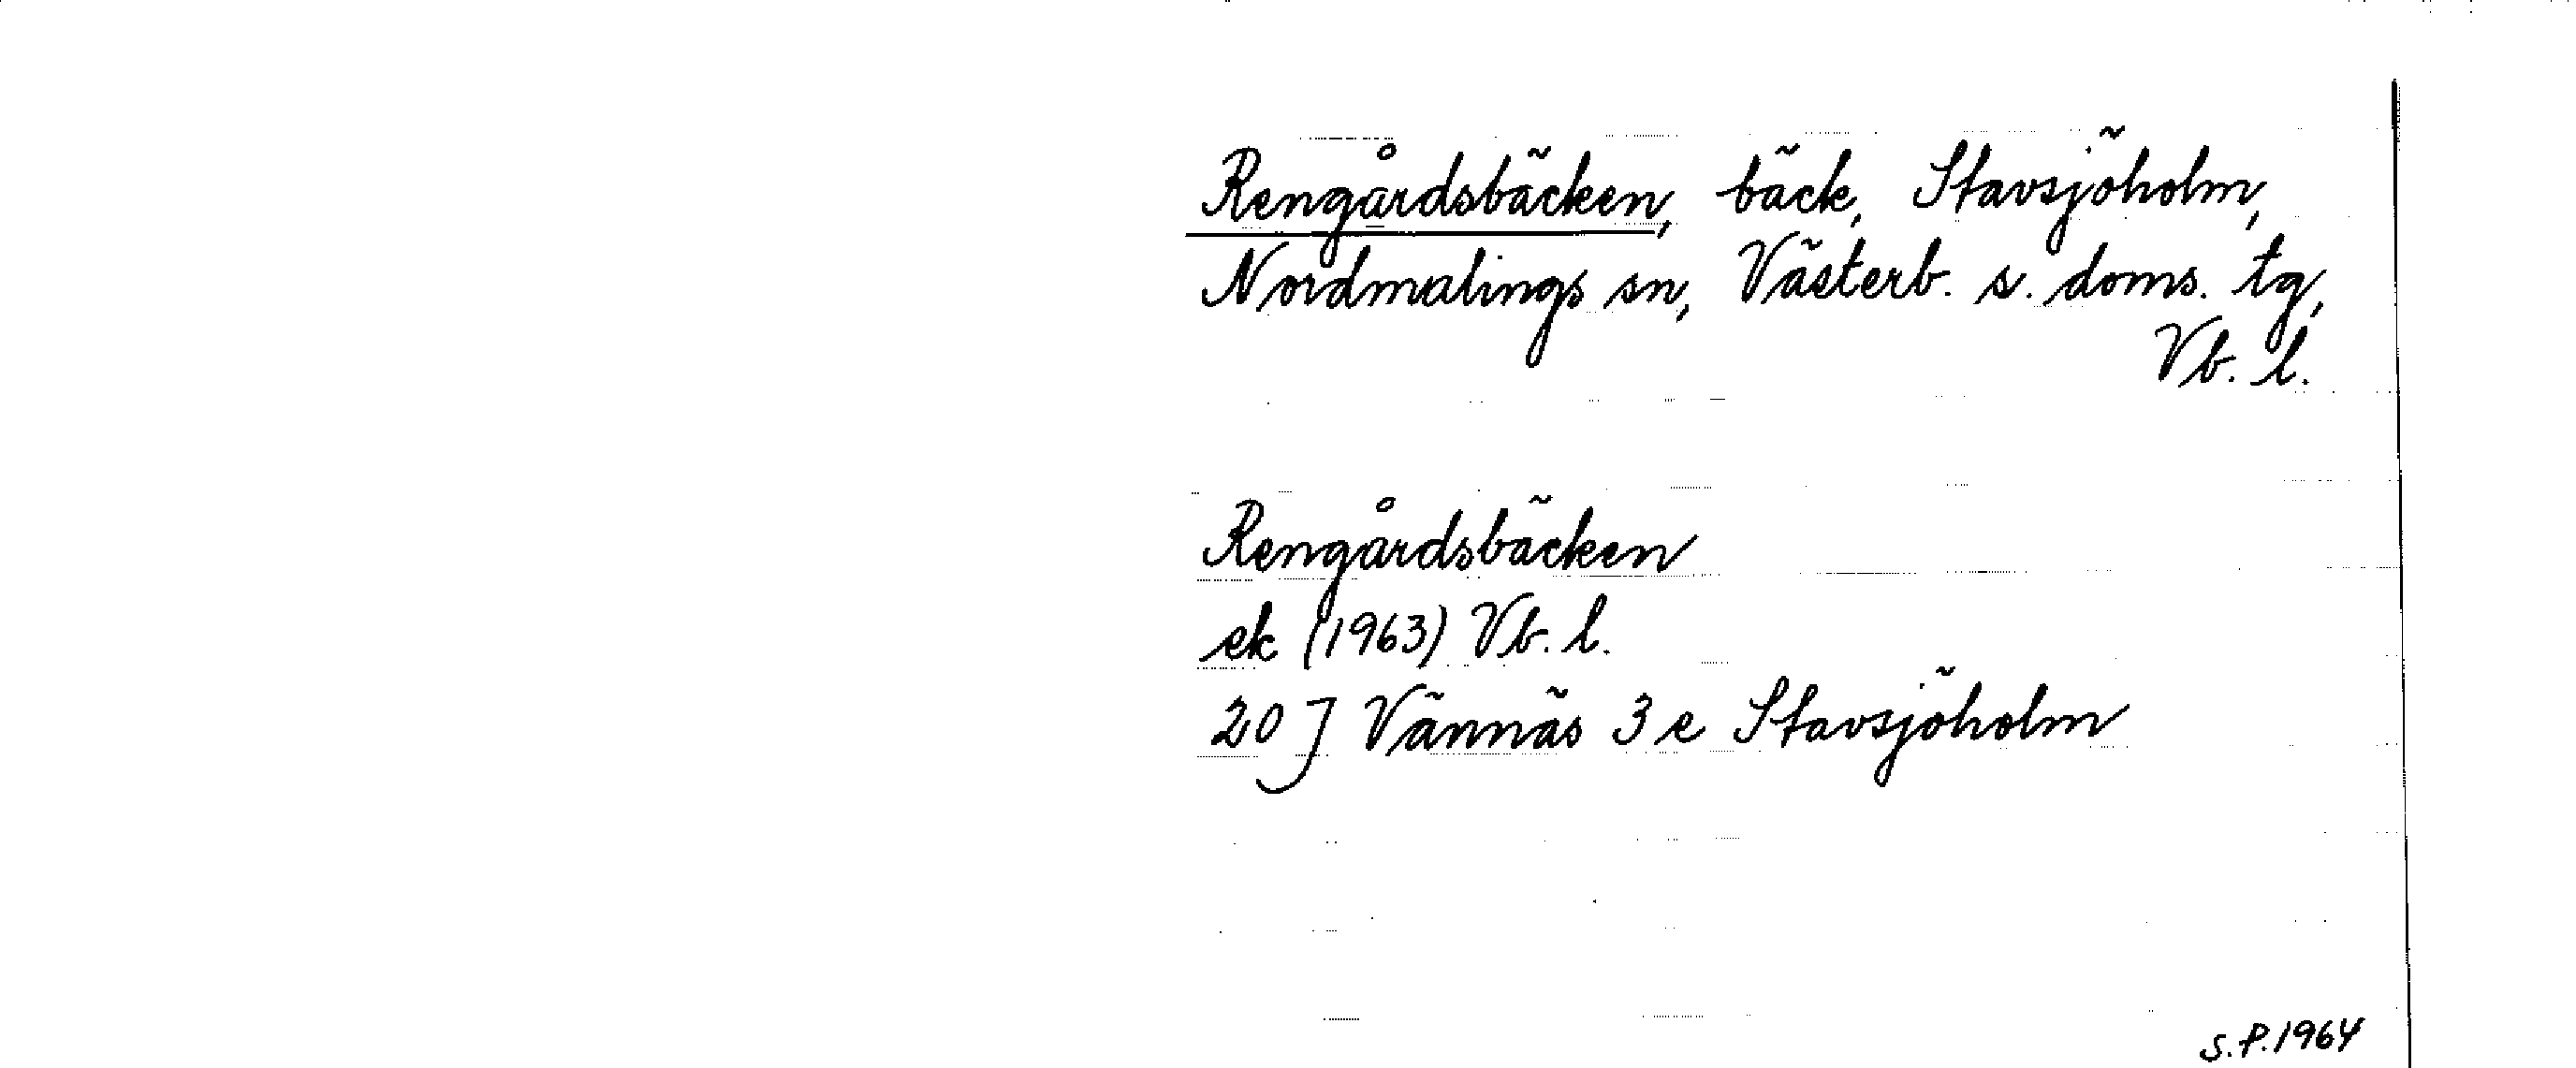 Rengårdsbäcken, bäck, Stavsjöholm,
Nordmalings sn, Västerb. s. doms. tg,
Vb. l.
Rengårdsbäcken
ek (1963) Vb. l.
20 J Vännäs 3 e Stavsjöholm
S.P. 1964